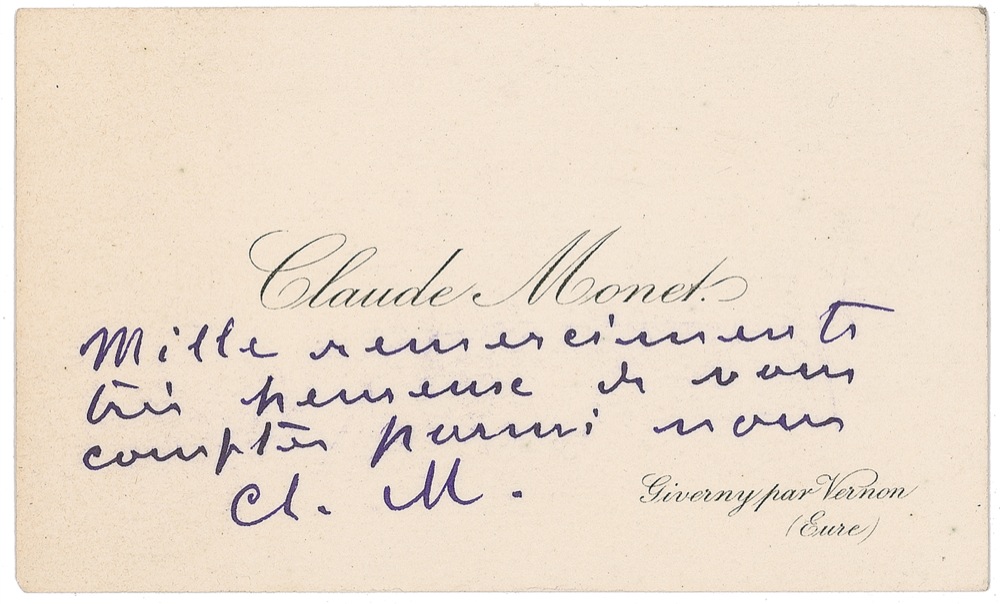 Claude Monet.
Mille remerciments
très heureuse de vous
compter parmi nous
Cl. M.
Giverny par Vernon
(Eure)